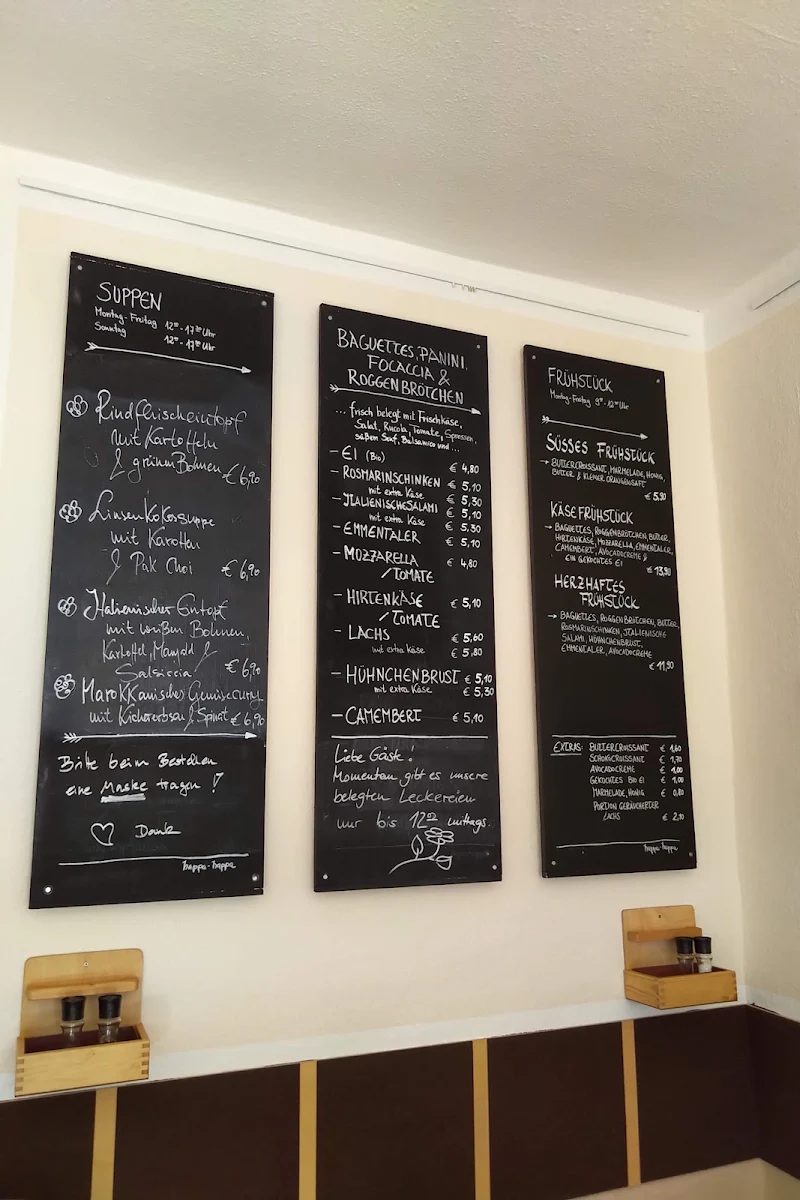 SUPPEN
Montag-Freitag 12⁰⁰-17³⁰ Uhr
Sonntag 12⁰⁰-17⁰⁰ Uhr
Rindfleischeintopf
mit Kartoffeln
& grünen Bohnen € 6,90
Linsen Kokossuppe
mit Karotten
& Pak Choi € 6,90
Italienischer Eintopf
mit weißen Bohnen,
Kartoffel, Mangold &
Salsiccia € 6,90
Marokkanisches Gemüsecurry
mit Kichererbsen & Spinat € 6,90
Bitte beim Bestellen
eine Maske tragen !
Danke
happa-happa
BAGUETTES, PANINI,
FOCACCIA &
ROGGENBRÖTCHEN
... frisch belegt mit Frischkäse,
Salat, Rucola, Tomate, Sprossen,
süßem Senf, Balsamico und ...
- EI (Bio) € 4,80
- ROSMARINSCHINKEN € 5,10
mit extra Käse € 5,30
- ITALIENISCHE SALAMI € 5,10
mit extra Käse € 5,30
- EMMENTALER € 5,10
- MOZZARELLA € 4,80
/TOMATE
- HIRTENKÄSE € 5,10
/TOMATE
- LACHS € 5,60
mit extra Käse € 5,80
- HÜHNCHENBRUST € 5,10
mit extra Käse € 5,30
- CAMEMBERT € 5,10
Liebe Gäste!
Momentan gibt es unsere
belegten Leckereien
nur bis 12⁰⁰ mittags.
FRÜHSTÜCK
Montag-Freitag 9⁰⁰-12⁰⁰ Uhr
SÜSSES FRÜHSTÜCK
→ BUTTERCROISSANT, MARMELADE, HONIG,
BUTTER & KLEINER ORANGENSAFT
€ 5,90
KÄSEFRÜHSTÜCK
→ BAGUETTES, ROGGENBRÖTCHEN, BUTTER,
HIRTENKÄSE, MOZZARELLA, EMMENTALER,
CAMEMBERT, AVOCADOCREME &
EIN GEKOCHTES EI
€ 13,90
HERZHAFTES
FRÜHSTÜCK
→ BAGUETTES, ROGGENBRÖTCHEN, BUTTER,
ROSMARINSCHINKEN, ITALIENISCHE
SALAMI, HÜHNCHENBRUST,
EMMENTALER, AVOCADOCREME
€ 11,90
EXTRAS: BUTTERCROISSANT € 1,60
SCHOKOCROISSANT € 1,70
AVOCADOCREME € 1,00
GEKOCHTES BIO EI € 1,00
MARMELADE, HONIG € 0,80
PORTION GERÄUCHERTER
LACHS € 2,10
happa-happa